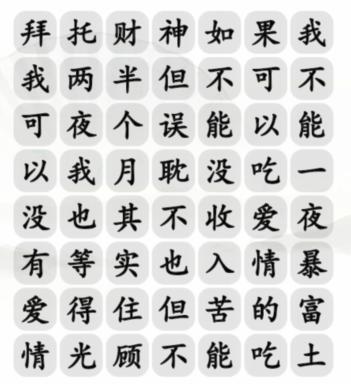 拜托财神如果我
我两半但不可不
可夜个误能以能
以我月耽没吃一
没也其不收爱夜
有等实也入情暴
爱得住但苦的富
情光顾不能吃土